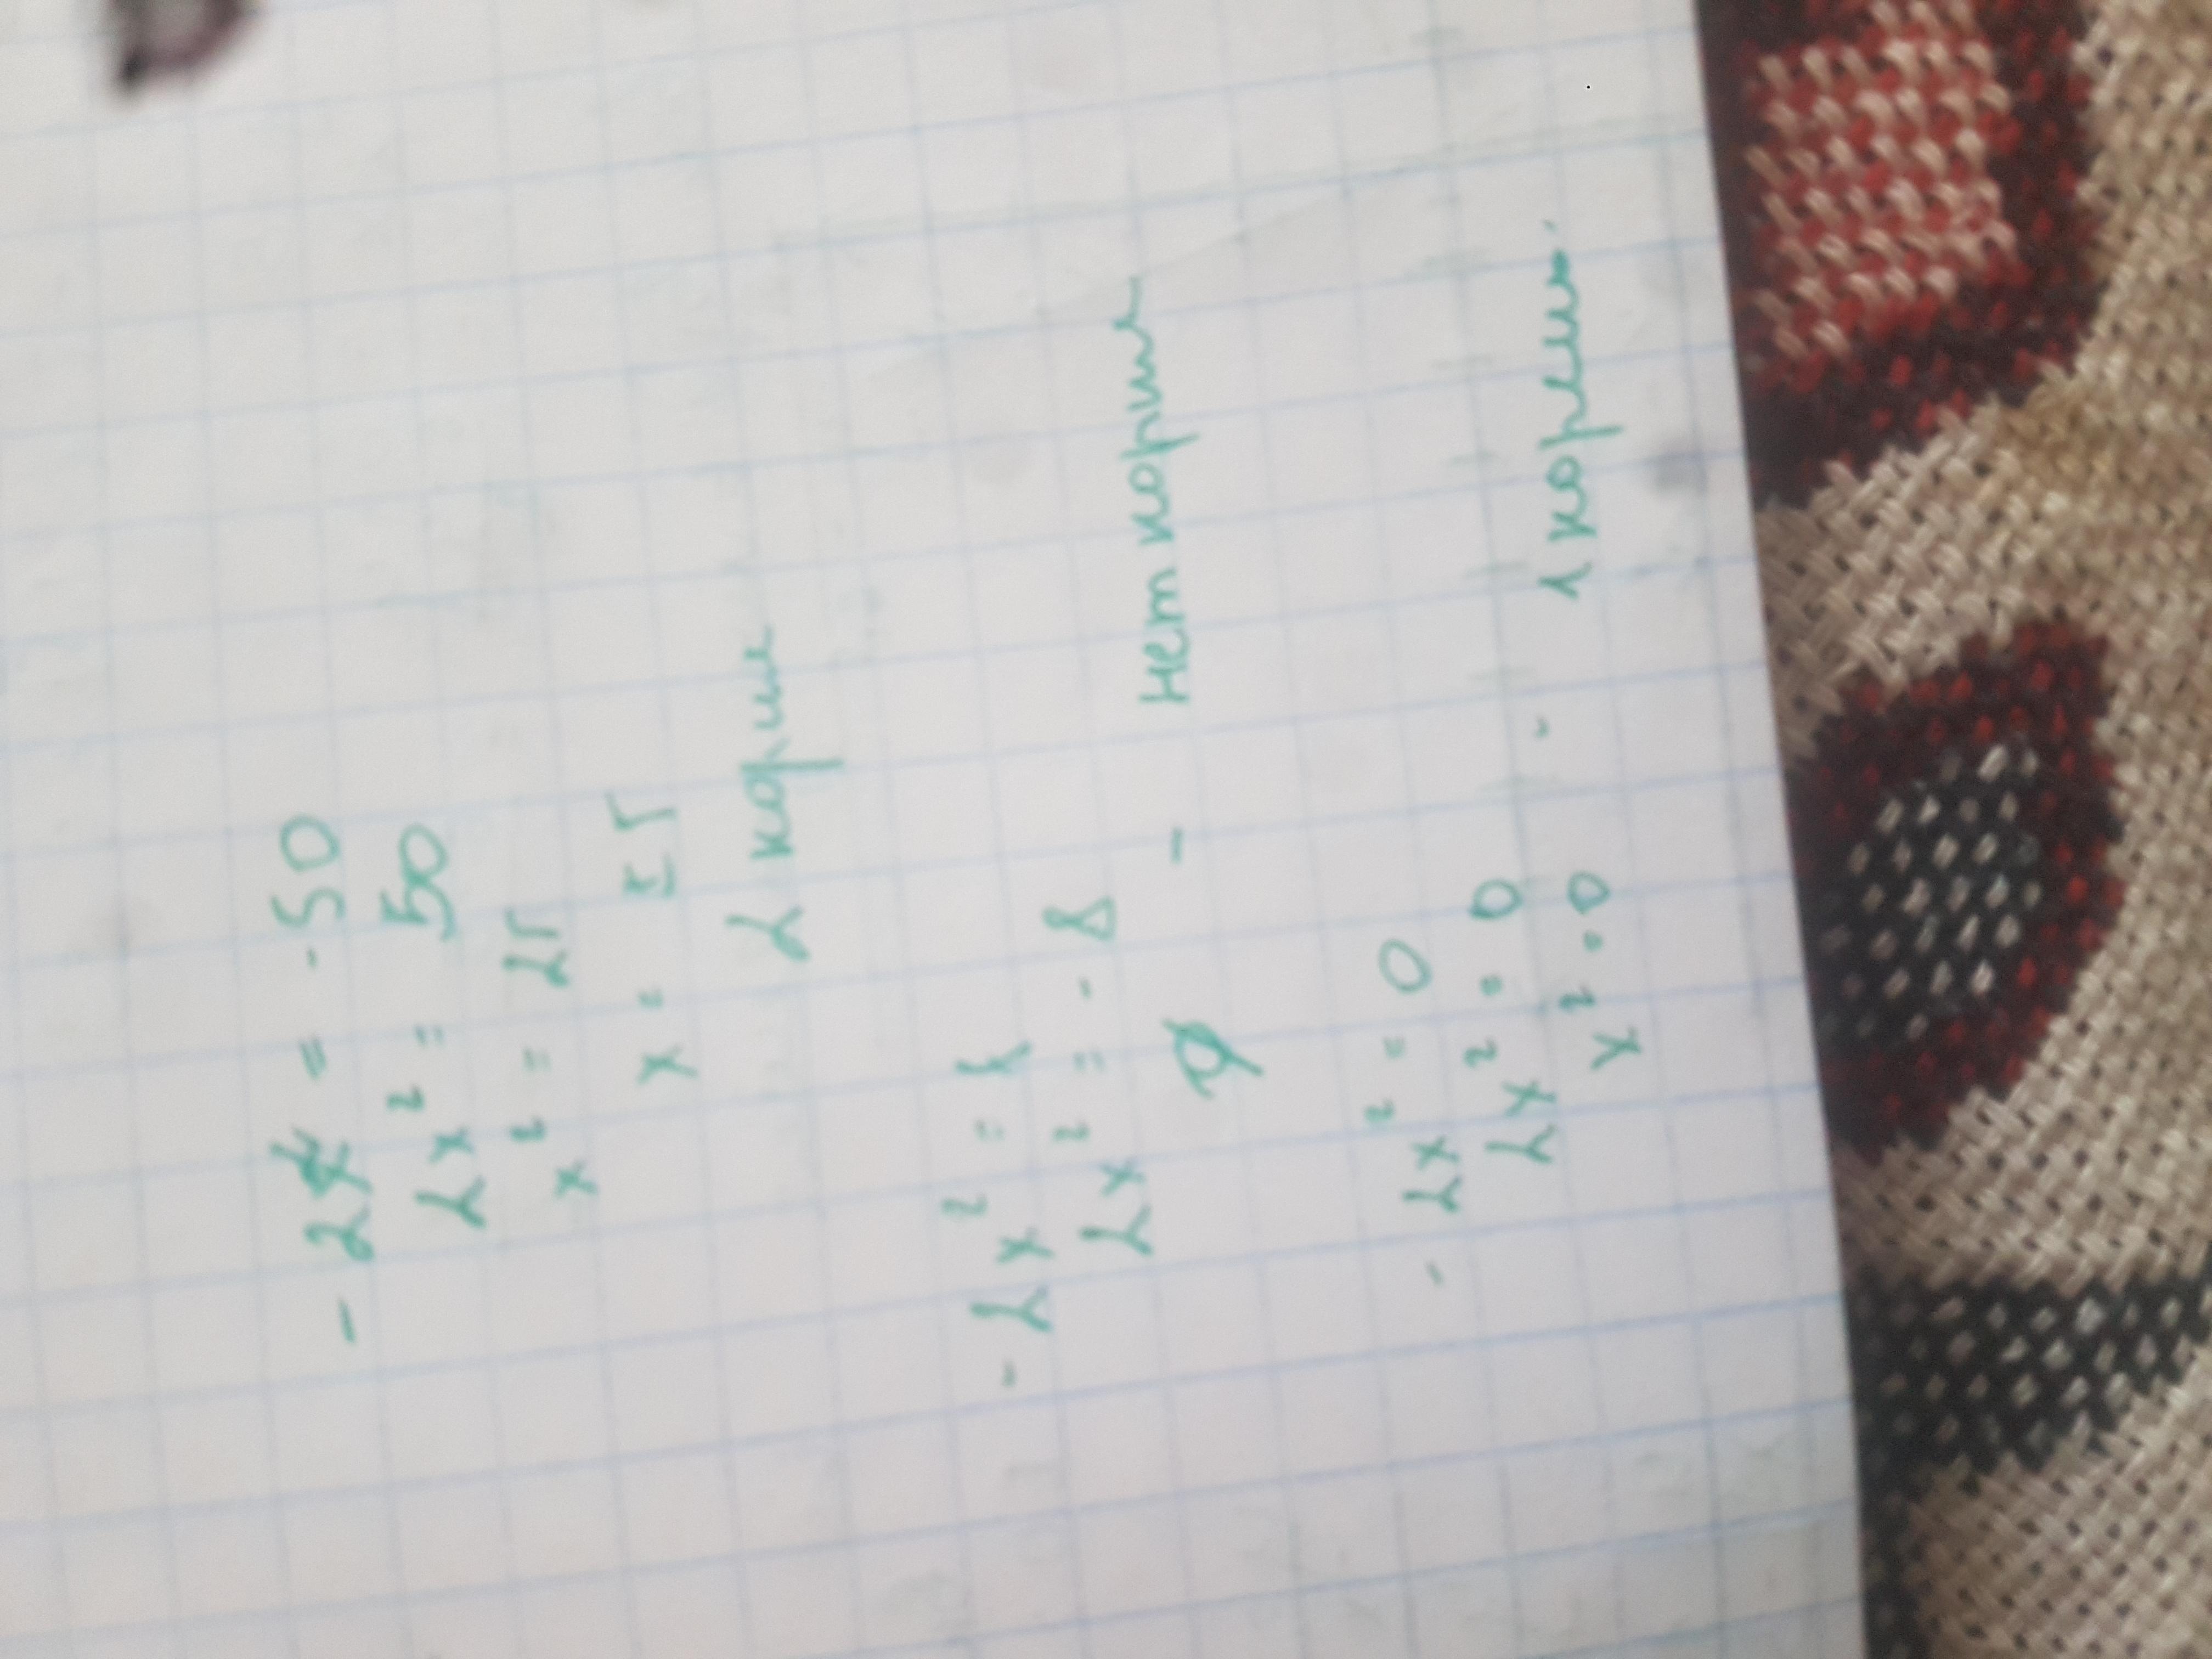 - 2x = - 50
2x² = 50
x² = 25
x = ± 5
2 корня
- 2x² = 8
2x² = - 8
∅ - нет корней
- 2x² = 0
2x² = 0
x² = 0 - 1 корень.